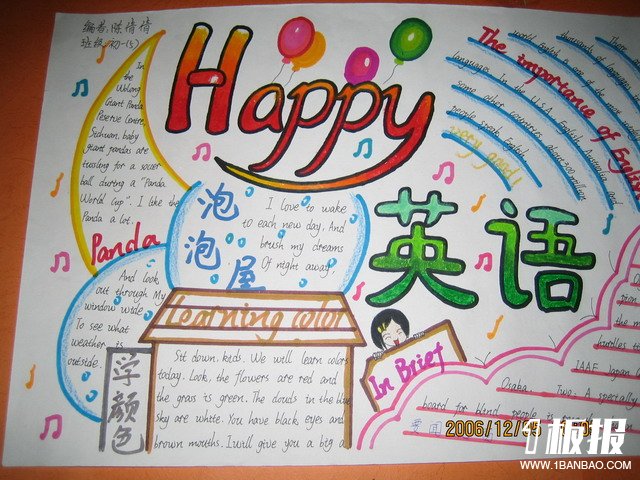 编者:陈倩倩
班级(初一15)
Happy
英语
In
the
Wolong
Giant Panda
Reserve Centre,
Sichuan, baby
giant pandas are
tussling for a soccer
ball during a "Panda
World Cup". I like the
Panda a lot.
Panda
泡泡屋
I love to wake
to each new day, And
brush my dreams
Of night away.
And look
out through My
window wide,
To see what
weather is
outside.
Learning color
学颜色
Sit down, kids. We will learn colors
today. Look, the flowers are red and
the grass is green. The clouds in the blue
sky are white. You have black eyes and
brown mouths. I will give you a big a
The importance of English
thousands of languages
some other countries
people speak English
very good!
In Brief
IAAF
Japan
Osaka. Two. A specially
board for blind people is
2006/12/
板报
WWW.1BANBAO.COM